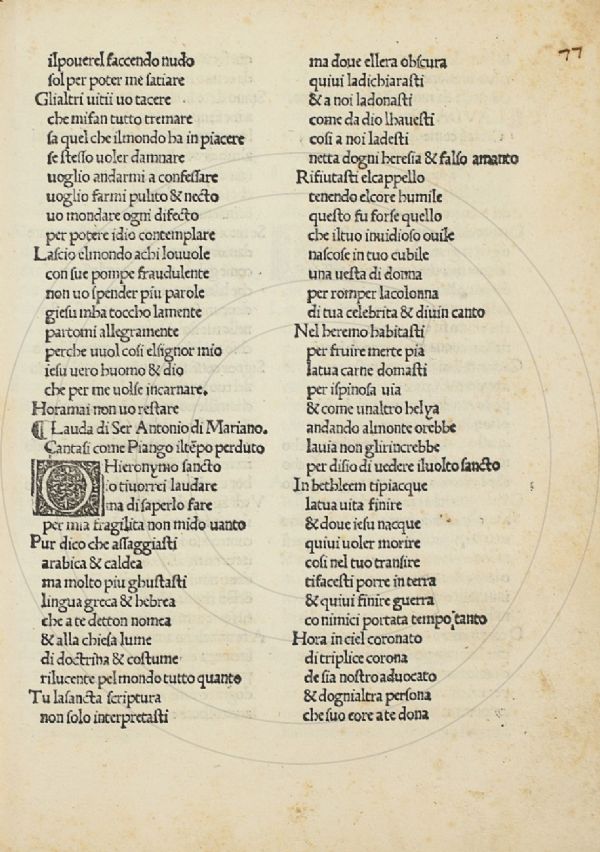 77
ilpouerel faccendo nudo
sol per poter me satiare
Glialtri uitii uo tacere
che mifan tutto tremare
fa quel che ilmondo ha in piacere
se stesso uoler damnare
uoglio andarmi a confessare
uoglio farmi pulito & necto
uo mondare ogni difecto
per potere idio contemplare
Lascio elmondo achi louuole
con sue pompe fraudulente
non uo spender piu parole
giesu mha toccho lamente
partomi allegramente
perche uuol cosi elsignor mio
iesu uero huomo & dio
che per me uolse incarnare.
Horamai non uo restare
¶ Lauda di Ser Antonio di Mariano.
Cantasi come Piango iltẽpo perduto
O Hieronymo sancto
io tiuorrei laudare
ma di saperlo fare
per mia fragilita non mido uanto
Pur dico che assaggiasti
arabica & caldea
ma molto piu ghustasti
lingua greca & hebrea
che a te detton nomea
& alla chiesa lume
di doctrina & costume
rilucente pel mondo tutto quanto
Tu lasancta scriptura
non solo interpretasti
ma doue ellera obscura
quiui ladichiarasti
& a noi ladonasti
come da dio lhauesti
cosi a noi ladesti
netta dogni heresia & falso amanto
Rifiutasti elcappello
tenendo elcore humile
questo fu forse quello
che iltuo inuidioso ouile
nascose in tuo cubile
una uesta di donna
per romper lacolonna
di tua celebrita & diuin canto
Nel heremo habitasti
per fruire merte pia
latua carne domasti
per ispinosa uia
& come unaltro helya
andando almonte orebbe
lauia non glirincrebbe
per disio di uedere iluolto sancto
In bethleem tipiacque
latua uita finire
& doue iesu nacque
quiui uoler morire
cosi nel tuo transire
tifacesti porre in terra
& quiui finire guerra
co nimici portata tempo tanto
Hora in ciel coronato
di triplice corona
de sia nostro aduocato
& dognialtra persona
che suo core a te dona